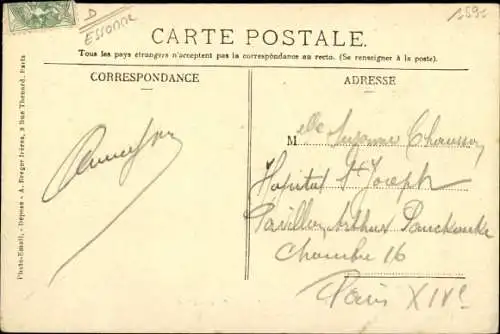 D
ESSONNE
CARTE POSTALE.
Tous les pays étrangers n'acceptent pas la correspondance au recto. (Se renseigner à la poste).
CORRESPONDANCE
ADRESSE
Melle Suzanne
Hopital St Joseph
Pavillon Arthur
Chambre 16
Paris XIVe
Photo-Email. - Déposé - A. Breger frères, 9 Rue Thénard, Paris